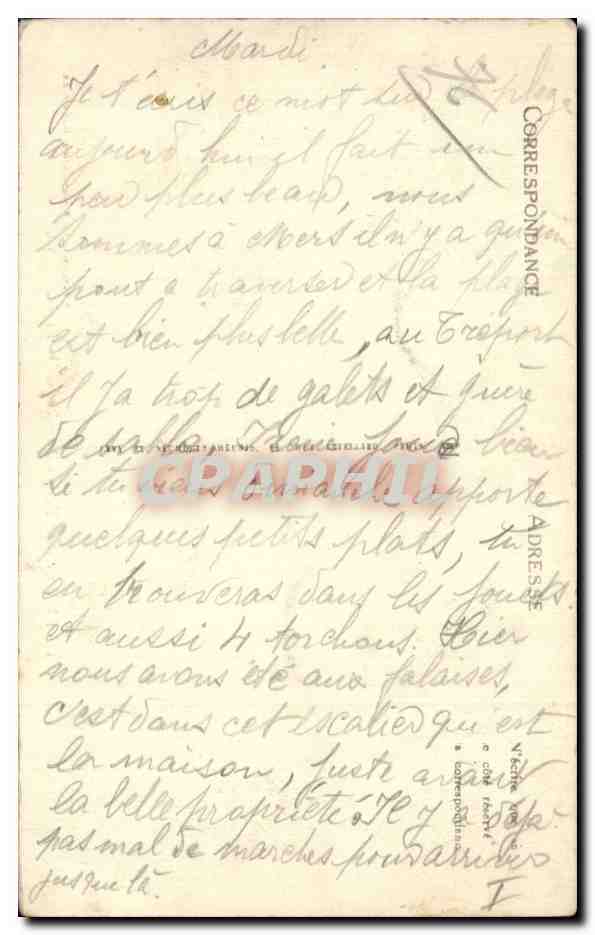 Mardi
76
Je t'écris ce mot sur plage
aujourd'hui il fait un
peu plus beau, nous
sommes à Mers il n'y a qu'un
pont a traverser et la plage
est bien plus belle, au Tréport
il y a trop de galets et guère
de sable.
si tu viens apporte
quelques petits plats, tu
en trouveras dans les
et aussi 4 torchons. Hier
nous avons été aux falaises,
c'est dans cet escalier qu'est
la maison, juste avant
la belle propriété. Il y a déjà
pas mal de marches pour arriver
jusque là.
I
CORRESPONDANCE
ADRESSE
N'écrire que
ce côté réservé
correspondance
CPAPHIL